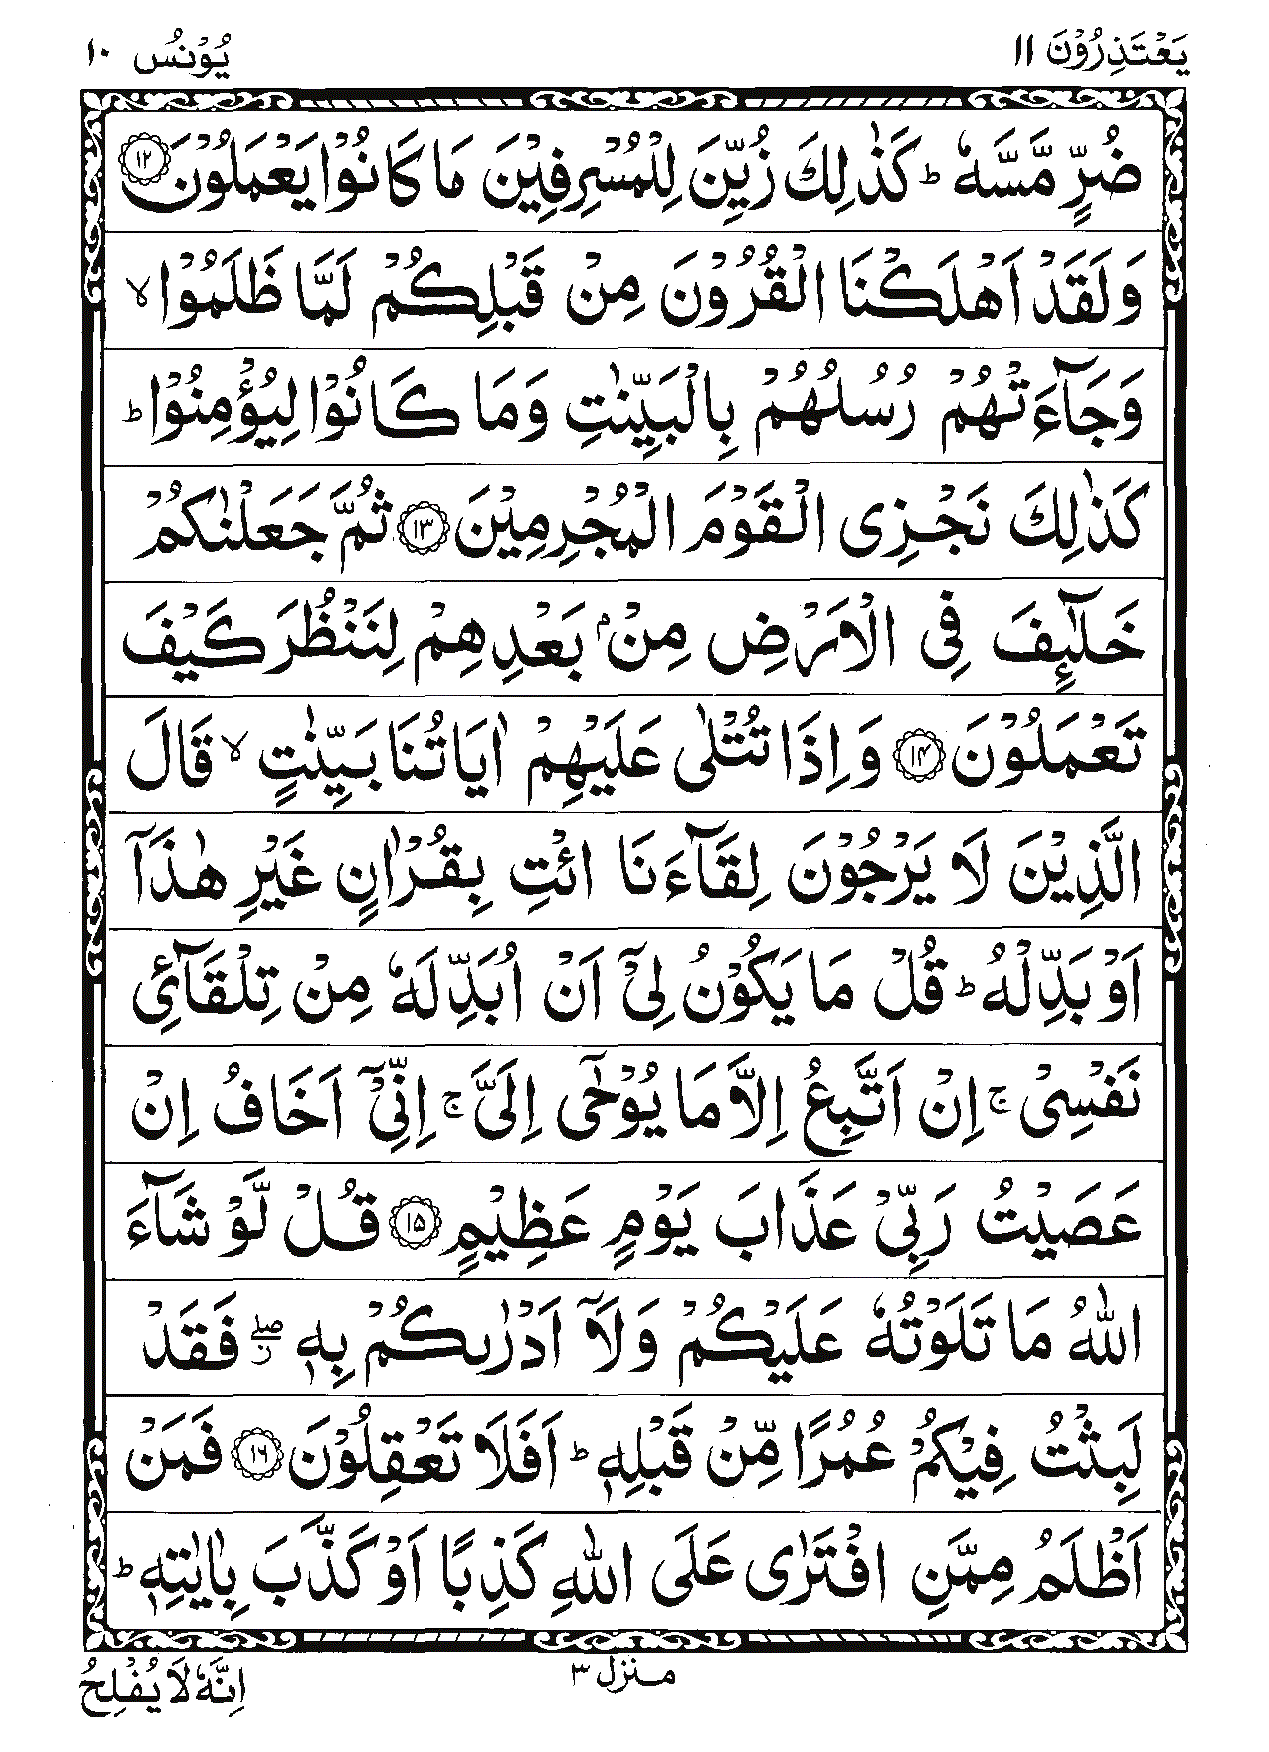 یَعْتَذِرُوْنَ ١١
یُوْنُس ١٠
ضُرٍّ مَّسَّهٗ ؕ كَذٰلِكَ زُیِّنَ لِلْمُسْرِفِیْنَ مَا كَانُوْا یَعْمَلُوْنَ ۝١٢
وَلَقَدْ اَهْلَكْنَا الْقُرُوْنَ مِنْ قَبْلِكُمْ لَمَّا ظَلَمُوْا ۙ
وَجَآءَتْهُمْ رُسُلُهُمْ بِالْبَیِّنٰتِ وَمَا كَانُوْا لِیُؤْمِنُوْا ؕ
كَذٰلِكَ نَجْزِی الْقَوْمَ الْمُجْرِمِیْنَ ۝١٣ ثُمَّ جَعَلْنٰكُمْ
خَلٰٓئِفَ فِی الْاَرْضِ مِنْۢ بَعْدِهِمْ لِنَنْظُرَ كَیْفَ
تَعْمَلُوْنَ ۝١٤ وَاِذَا تُتْلٰی عَلَیْهِمْ اٰیَاتُنَا بَیِّنٰتٍ ۙ قَالَ
الَّذِیْنَ لَا یَرْجُوْنَ لِقَآءَنَا ائْتِ بِقُرْاٰنٍ غَیْرِ هٰذَاۤ
اَوْ بَدِّلْهُ ؕ قُلْ مَا یَكُوْنُ لِیْۤ اَنْ اُبَدِّلَهٗ مِنْ تِلْقَآئِ
نَفْسِیْ ۚ اِنْ اَتَّبِعُ اِلَّا مَا یُوْحٰۤی اِلَیَّ ۚ اِنِّیْۤ اَخَافُ اِنْ
عَصَیْتُ رَبِّیْ عَذَابَ یَوْمٍ عَظِیْمٍ ۝١٥ قُلْ لَّوْ شَآءَ
اللّٰهُ مَا تَلَوْتُهٗ عَلَیْكُمْ وَلَاۤ اَدْرٰىكُمْ بِهٖ ۖؗ فَقَدْ
لَبِثْتُ فِیْكُمْ عُمُرًا مِّنْ قَبْلِهٖ ؕ اَفَلَا تَعْقِلُوْنَ ۝١٦ فَمَنْ
اَظْلَمُ مِمَّنِ افْتَرٰی عَلَی اللّٰهِ كَذِبًا اَوْ كَذَّبَ بِاٰیٰتِهٖ ؕ
منزل ٣
اِنَّهٗ لَا یُفْلِحُ